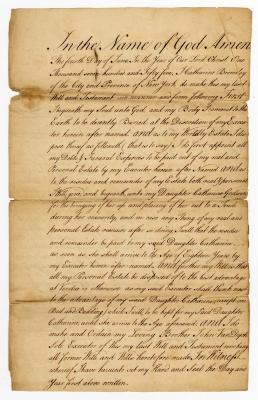 In the Name of God Amen
The fourth Day of June In the Year of Our Lord Christ One
Thousand seven hundred and Fifty five, I Catharine Bromley
of the City and Province of New York do make this my Last
Will and Testament in manner and form following First I
bequeath my Soul unto God, and my Body I commit to the
Earth to be decently Buried at the Discretion of my Execu-
tor herein after named And as to my Worldly Estate I dis-
pose thereof as followeth (that is to say) I do first appoint all
my Debts & Funeral Expences to be paid out of my real and
Personal Estate by my Executor herein after named And as
to the residue and remainder of my Estate both real & personal
I Will, give and bequeath unto my Daughter Catharine
for the bringing of her up and placing of her out to a Trade
during her minority and in case any thing of my real and
personal Estate remain after so doing I will that the residue
and remainder be paid to my said Daughter Catharine
as soon as she shall arrive to the Age of Eighteen Years by
my Executor herein after named And further my Will is that
all my Personal Estate be disposed of to the best advantage
at Vendue or otherwise as my said Executor shall think most
to the advantage of my said Daughter Catharine except one
Bed and Bedding which I will to be kept for my Said Daughter
Catharine until she arrives to the Age aforesaid, And I do
make and Ordain my Loving Brother John Van Dyck
Sole Executor of this my last Will and Testament revoking
all former Wills and Wills heretofore made In Witness
whereof I have hereunto set my Hand and Seal the Day and
Year first above written.